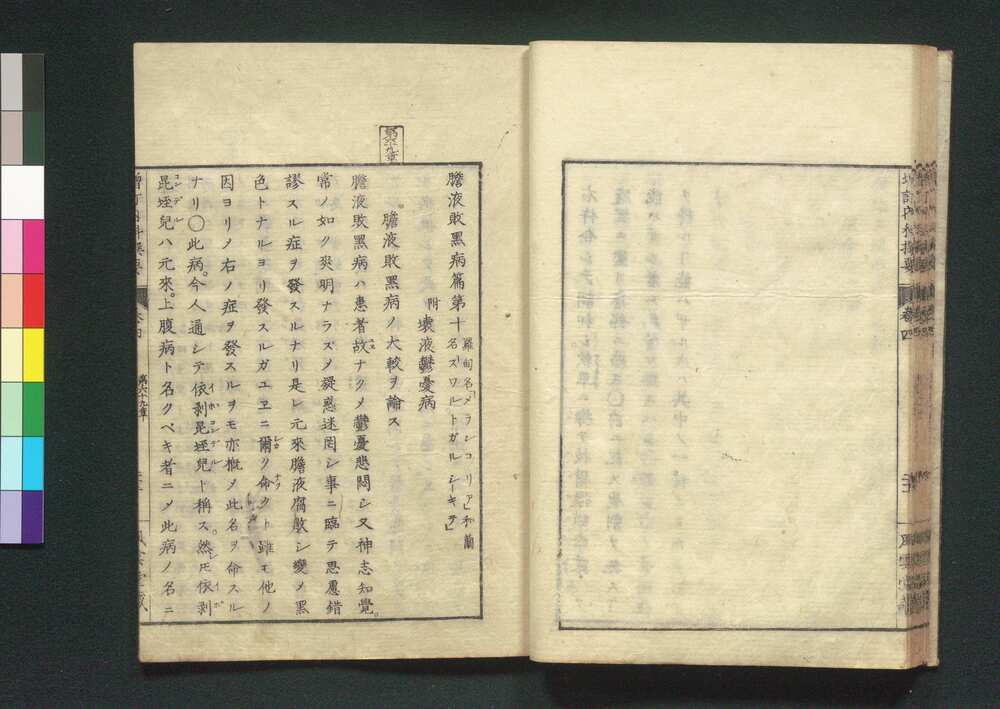 増訂内科撰要
巻四
第六十九章
膽液敗黑病篇第十 羅甸名「メランコリア」和蘭
名「スワルトガルシーキテ」
附 壞液鬱憂病
膽液敗黑病ノ大較ヲ論ス
膽液敗黑病ハ患者故ナクメ鬱憂悲悶シ又神志知覺。
常ノ如ク爽明ナラズメ疑惑迷罔シ事ニ臨テ思慮錯
謬スル症ヲ發スルナリ是レ元來膽液腐敗シ變メ黑
色トナルヨリ發スルガユヱニ爾ク命クト雖モ他ノ
因ヨリメ右ノ症ヲ發スルヲモ亦概メ此名ヲ命スル
ナリ〇此病。今人通シテ依剥昆垤兒ト稱ス。然レ𪜈依剥
昆垤兒ハ元來。上腹病ト名クベキ者ニメ此病ノ名ニ
第六十九章